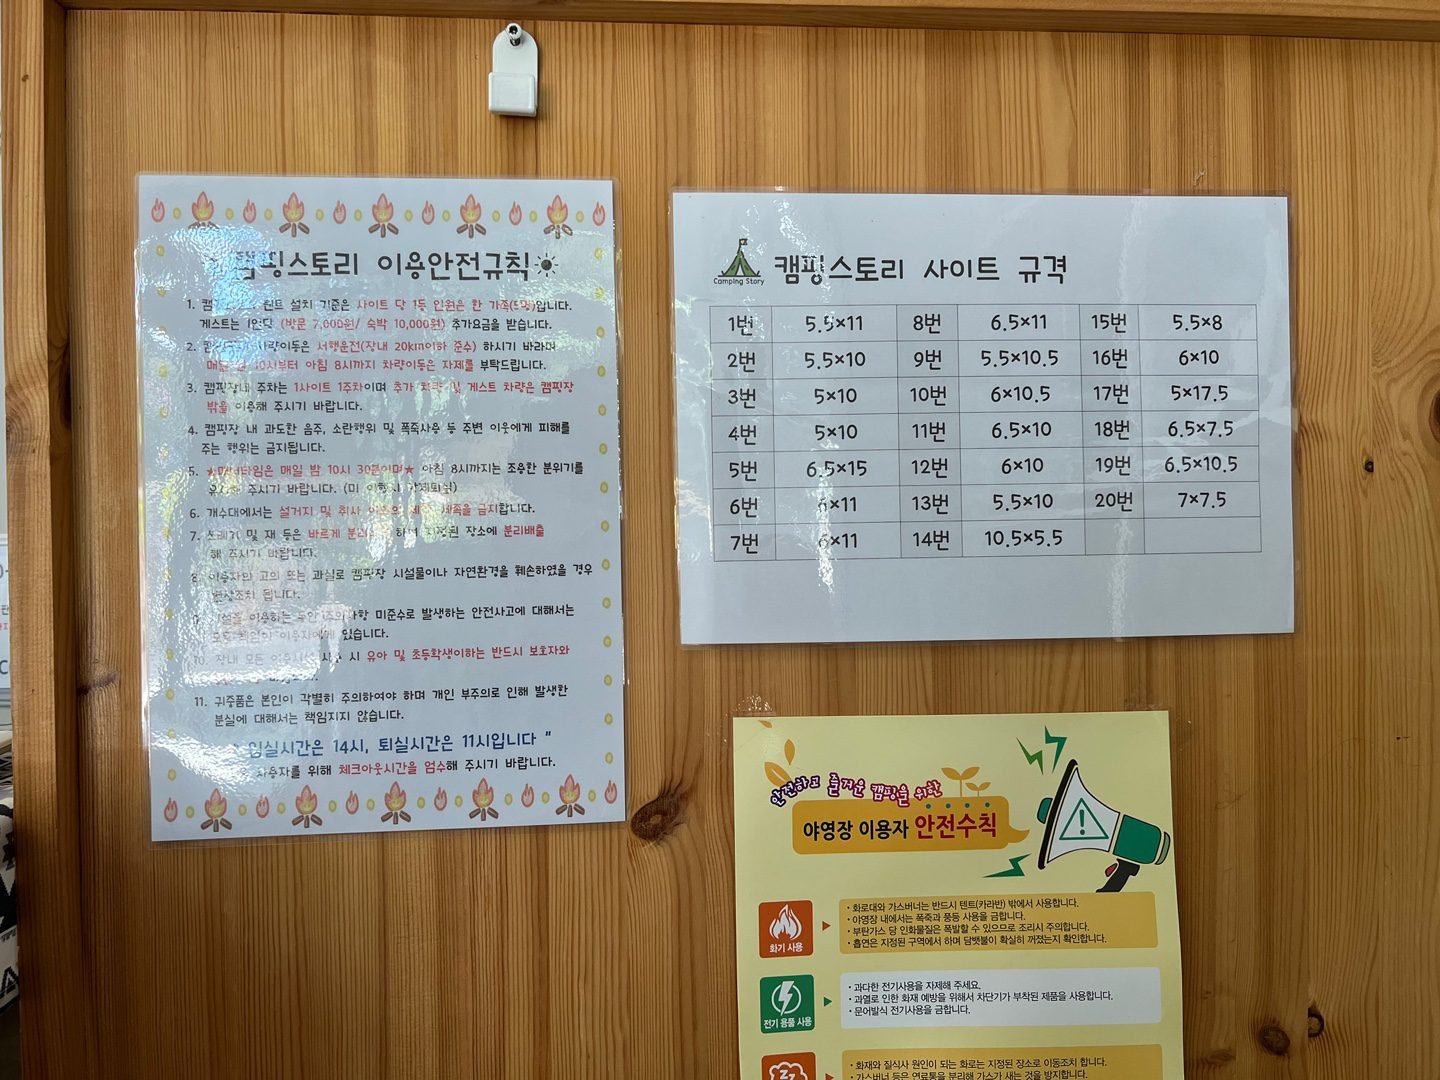 캠핑스토리 이용안전규칙
1. 설치 기준은 사이트 당 1동 인원은 한 가족(5명)입니다.
게스트는 1인당 (방문 7,000원/ 숙박 10,000원) 추가요금을 받습니다.
2. 차량이동은 서행운전(장내 20km이하 준수) 하시기 바라며
매일 밤 10시부터 아침 8시까지 차량이동은 자제를 부탁드립니다.
3. 캠핑장내 주차는 1사이트 1주차이며 추가 차량 및 게스트 차량은 캠핑장
밖을 이용해 주시기 바랍니다.
4. 캠핑장 내 과도한 음주, 소란행위 및 폭죽사용 등 주변 이웃에게 피해를
주는 행위는 금지됩니다.
5. ★매너타임은 매일 밤 10시 30분이며★ 아침 8시까지는 조용한 분위기를
유지해 주시기 바랍니다. (미 이행시 강제퇴실)
6. 개수대에서는 설거지 및 취사 금지합니다.
7. 쓰레기 및 재 등은 바르게 하여 지정된 장소에 분리배출
해 주시기 바랍니다.
8. 이용자의 고의 또는 과실로 캠핑장 시설물이나 자연환경을 훼손하였을 경우
변상조치 됩니다.
이용하는 동안 주의사항 미준수로 발생하는 안전사고에 대해서는
모든 책임이 이용자에게 있습니다.
10. 장내 모든 시 유아 및 초등학생이하는 반드시 보호자와
11. 귀중품은 본인이 각별히 주의하여야 하며 개인 부주의로 인해 발생한
분실에 대해서는 책임지지 않습니다.
" 입실시간은 14시, 퇴실시간은 11시입니다 "
사용자를 위해 체크아웃시간을 엄수해 주시기 바랍니다.
Camping Story
캠핑스토리 사이트 규격
1번 5.5×11 8번 6.5×11 15번 5.5×8
2번 5.5×10 9번 5.5×10.5 16번 6×10
3번 5×10 10번 6×10.5 17번 5×17.5
4번 5×10 11번 6.5×10 18번 6.5×7.5
5번 6.5×15 12번 6×10 19번 6.5×10.5
6번 6×11 13번 5.5×10 20번 7×7.5
7번 6×11 14번 10.5×5.5
안전하고 즐거운 캠핑을 위한
야영장 이용자 안전수칙
화기 사용
• 화로대와 가스버너는 반드시 텐트(카라반) 밖에서 사용합니다.
• 야영장 내에서는 폭죽과 풍등 사용을 금합니다.
• 부탄가스 당 인화물질은 폭발할 수 있으므로 조리시 주의합니다.
• 흡연은 지정된 구역에서 하며 담뱃불이 확실히 꺼졌는지 확인합니다.
전기 용품 사용
• 과다한 전기사용을 자제해 주세요.
• 과열로 인한 화재 예방을 위해서 차단기가 부착된 제품을 사용합니다.
• 문어발식 전기사용을 금합니다.
• 화재와 질식사 원인이 되는 화로는 지정된 장소로 이동조치 합니다.
• 가스버너 등은 연료통을 분리해 가스가 새는 것을 방지합니다.